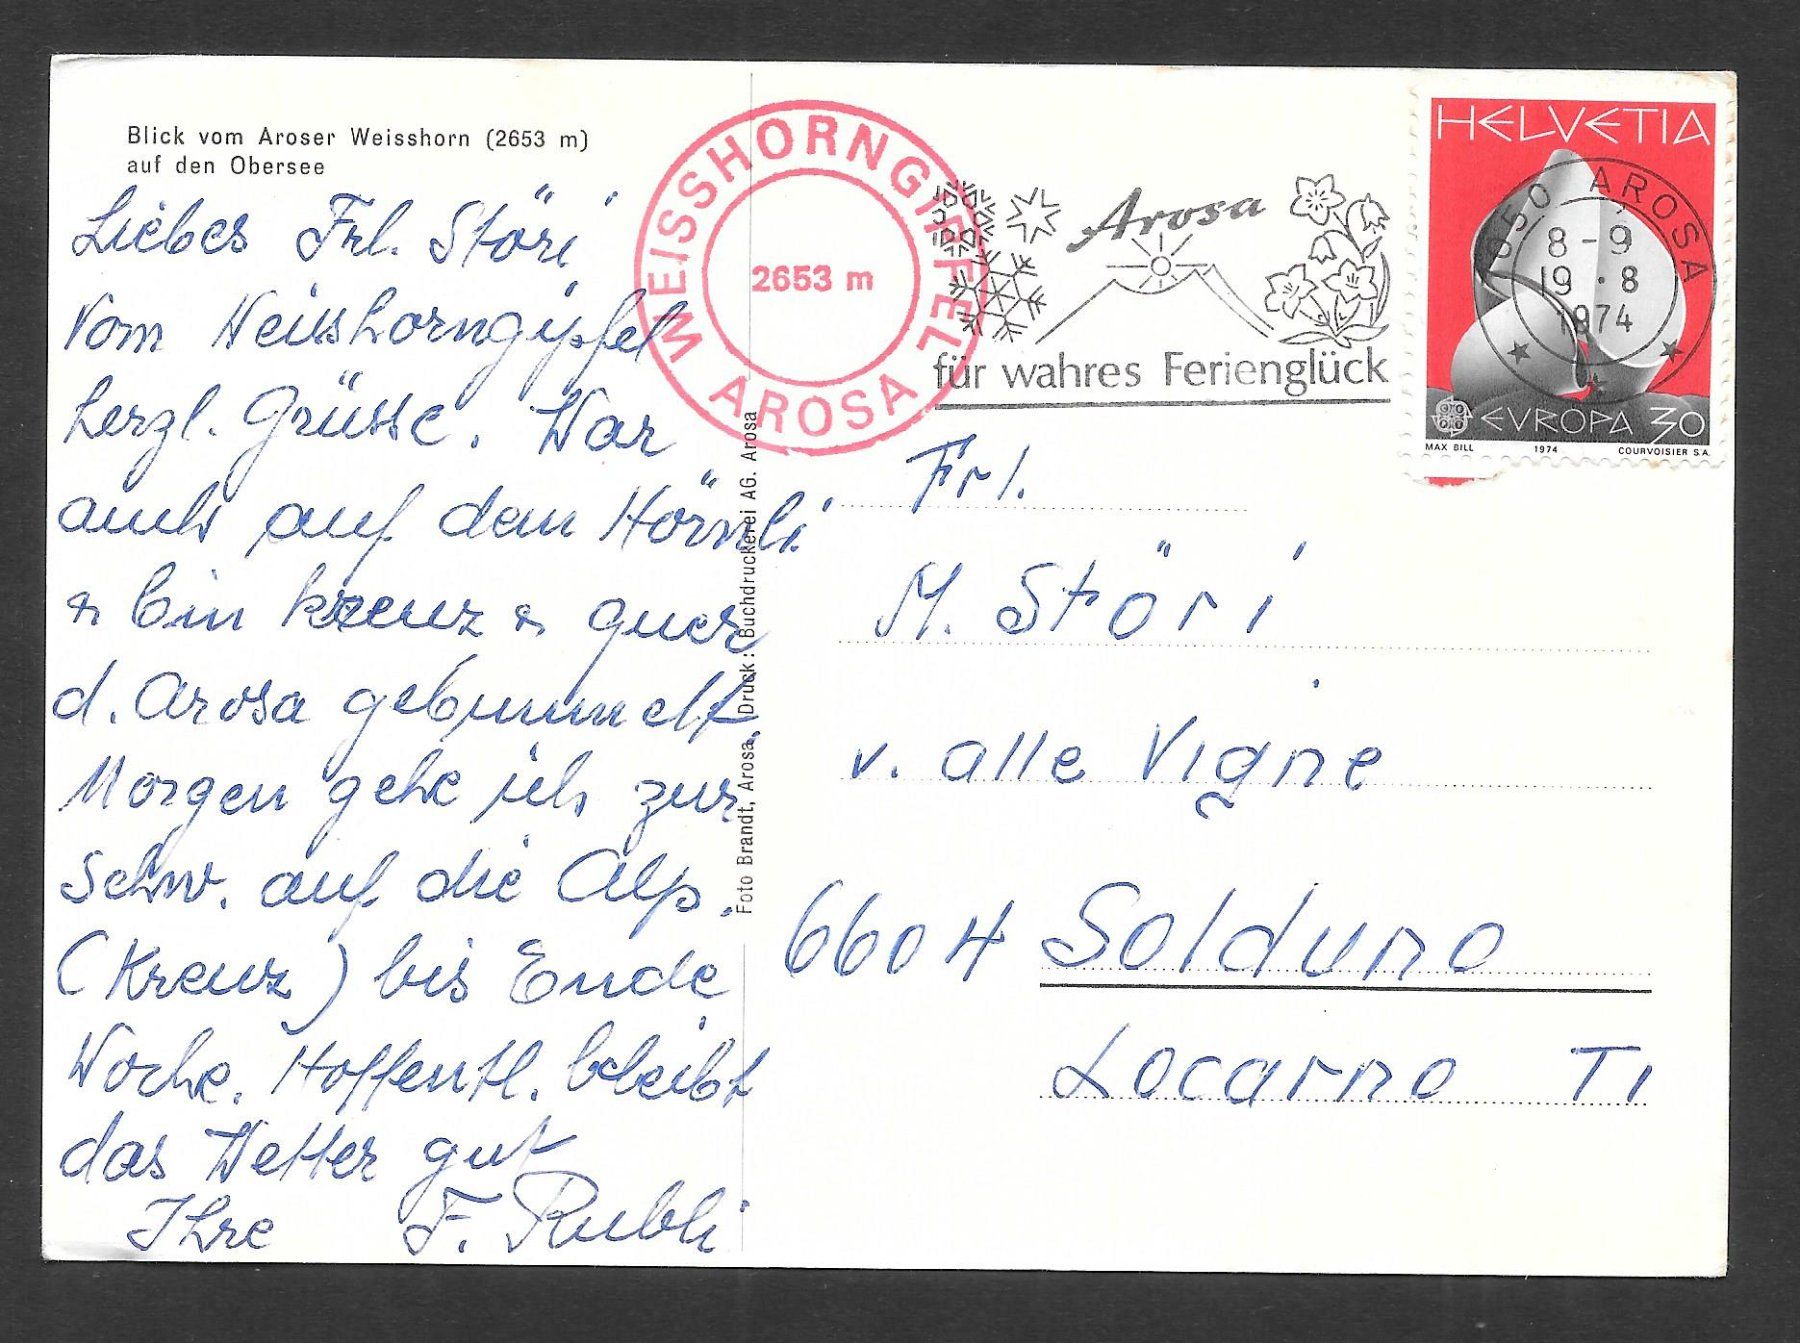 Blick vom Aroser Weisshorn (2653 m)
auf den Obersee
Liebes Frl. Störi
Vom Weisshorngipfel
herzl. Grüsse. War
auch auf dem Hörnli
& bin kreuz & quer
d. Arosa gebummelt.
Morgen gehe ich zur
Schw. auf die Alp.
(Kreuz) bis Ende
Woche. Hoffentl. bleibt
das Wetter gut
Ihre F. Rubli
WEISSHORNGIPFEL
2653 m
AROSA
Foto Brandt, Arosa / Druck: Buchdruckerei AG. Arosa
Arosa
für wahres Ferienglück
HELVETIA
7050 AROSA
8-9
19.8
1974
EVROPA 30
MAX BILL 1974 COURVOISIER S.A.
Frl.
M. Störi
v. alle Vigne
6604 Solduno
Locarno TI